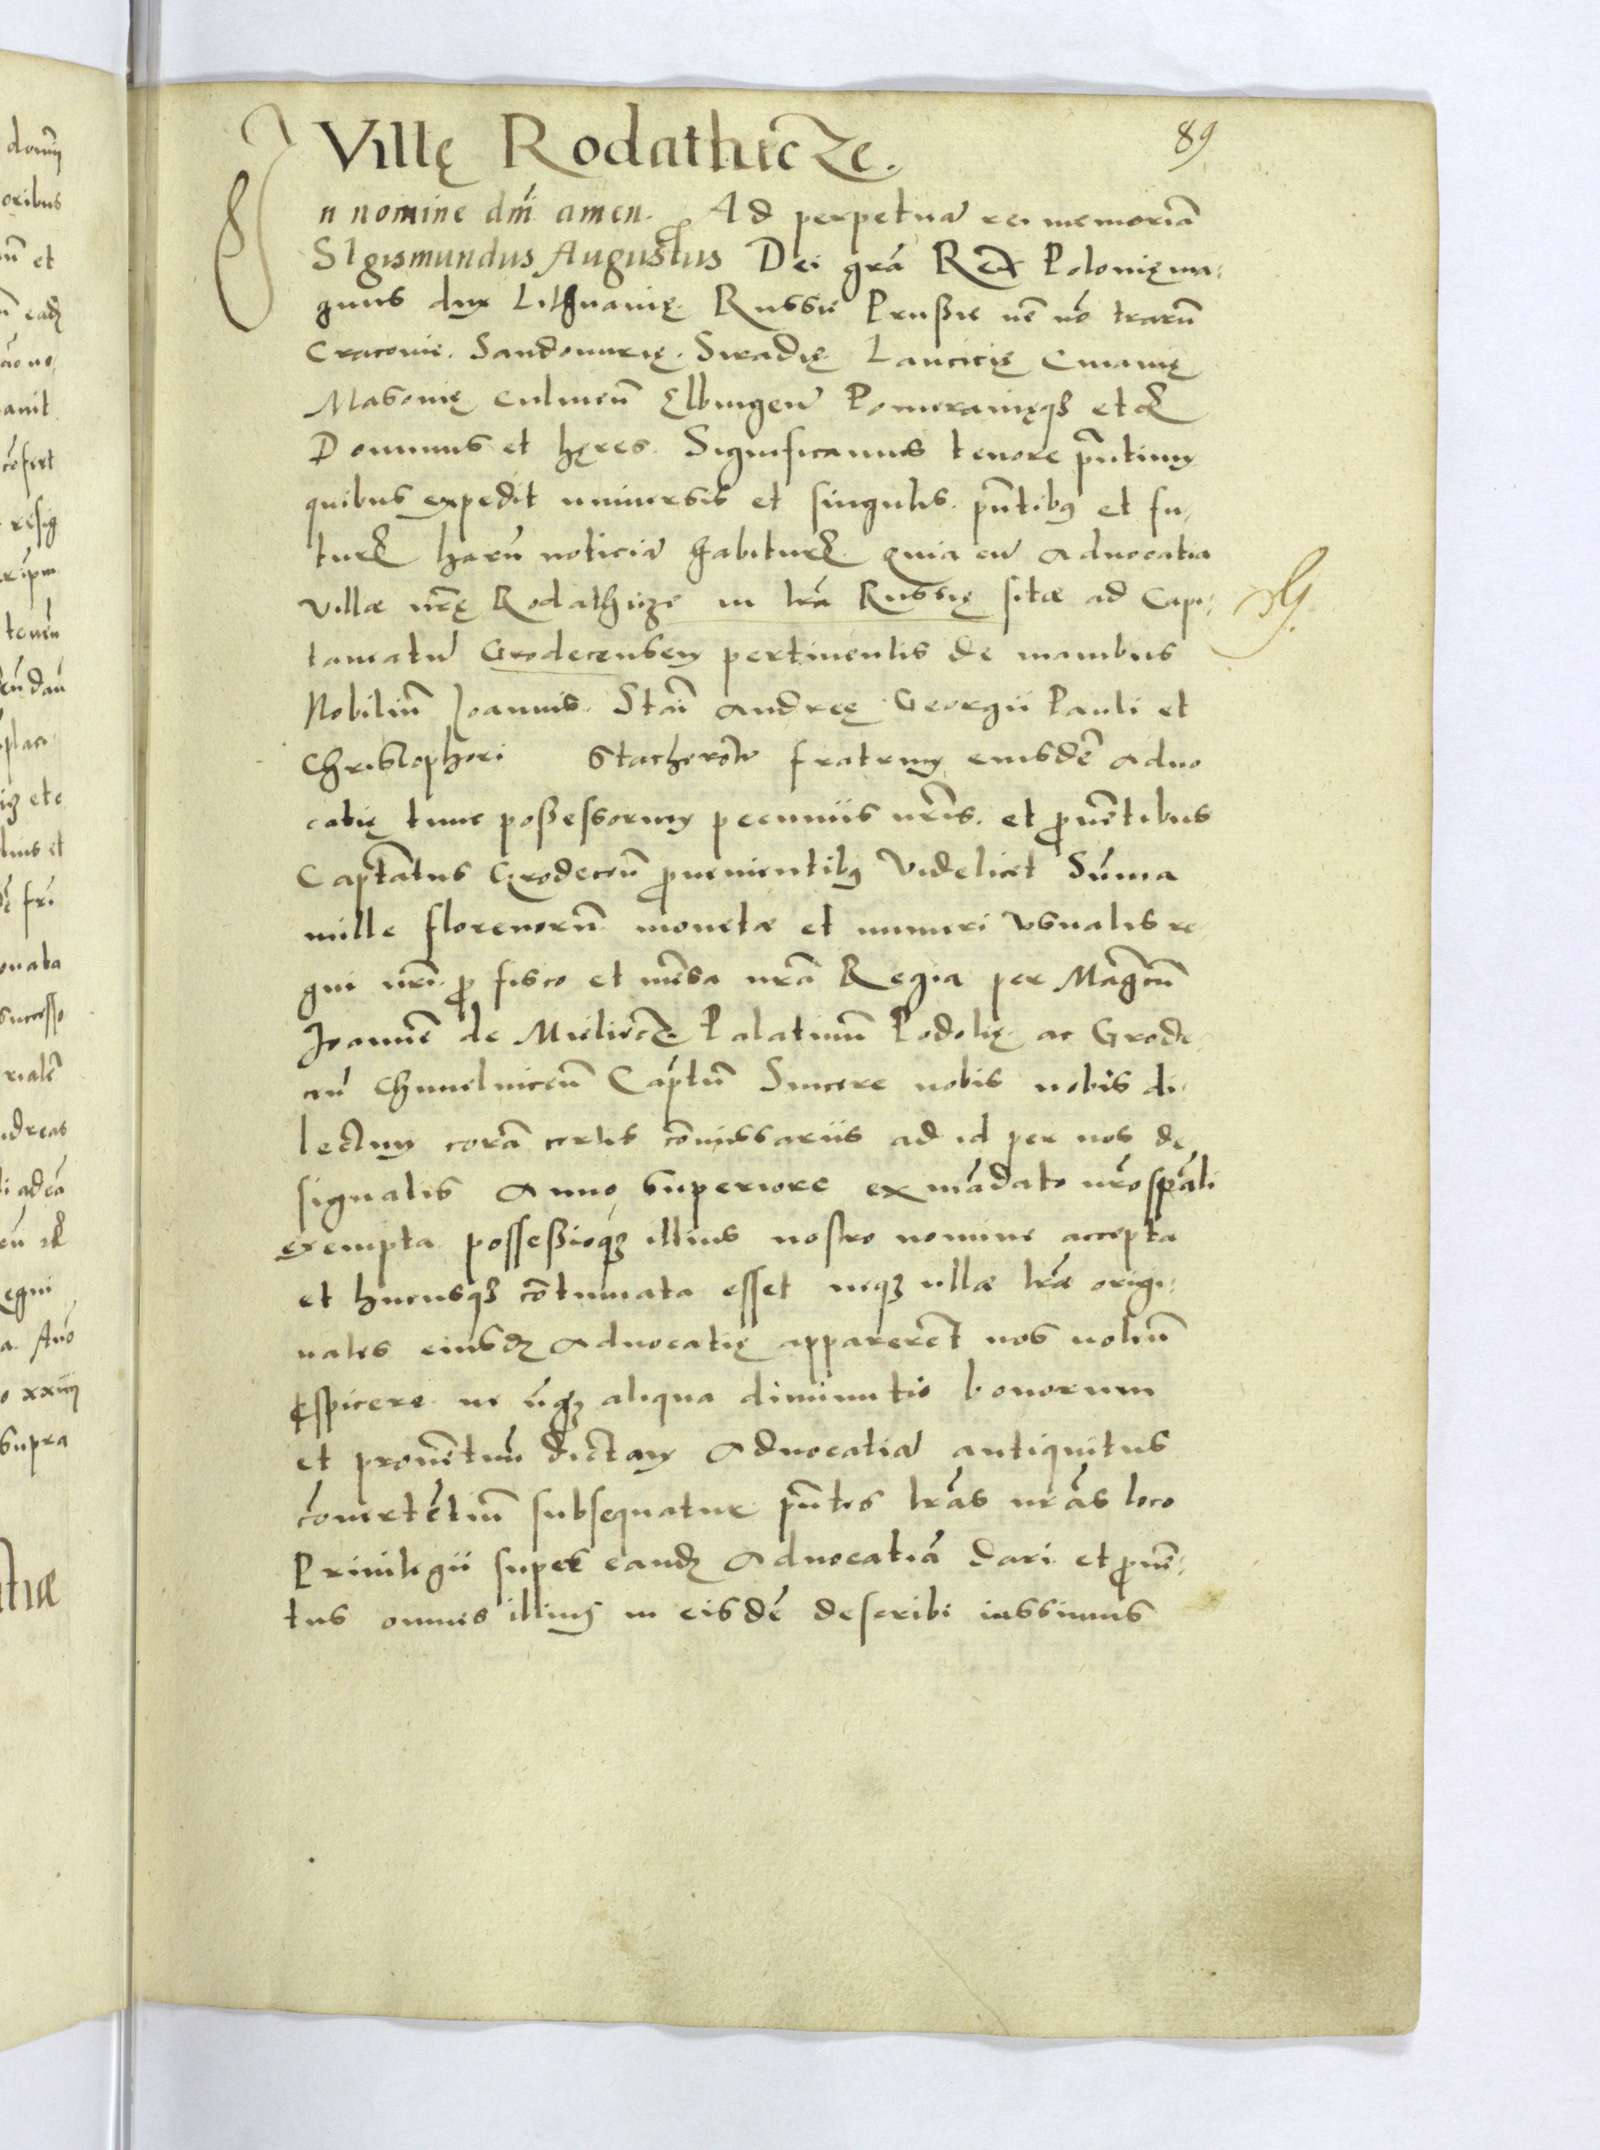 89
Villę Rodathicze.
In nomine dm̃i amen. Ad perpetuā rei memoriā
SIgismundus Augustus Dei grā Rex Polonię ma-
gnus dux Lithuanię. Russie Prussie nec nō trarū
Cracovie. Sandomirię. Siradię. Lancicię Cuiavię
Masovię Culmeñ Elbingeñ Pomeranięq3 etc̃
Dominus et hęres. Significamus tenore pñtium
quibus expedit universis et singulis. pñtibus et fu-
turis harū noticiā habituris. quia cū Advocatia
Villæ nr̃ę Rodathicze in trā Russię sitæ ad Capi-
taneatū Grodecensem pertinentis de manibus
Nobiliū Joannis. Stañi Andreę Georgii Pauli et
Christophori fratrum eiusdē Advo
catię tunc possessorum pecuniis nr̃is. et proventibus
Captātus Grodeceñ provenientibus Videlicet Sūma
mille florenorū monetæ et numeri usualis re-
gni nr̃i pro fisco et mēsa nrā Regia per Magcūm
Joannē de Mielecz. Palatinū Podolię. ac Grode
ceñ Chmielniceñ Captūm Sincere nobis nobis di-
lectum corā certis cōmissariis ad id per nos de
signatis Anno superiore ex mādato nr̃o spāli
exempta possessioq3 illius nostro nomine accepta
et hucusq3 cōtinuata esset neq3 ullæ lr̃æ origi-
nales eiusdem Advocatię apparerēt nos
ne aliqua diminutio bonorum
et proventuū dictam Advocatiā antiquitus
subsequatur pñtes lrās nr̃as loco
Privilegii super eandem Advocatiā dari et provē-
tus omnes illius in eisdē describi iussimus